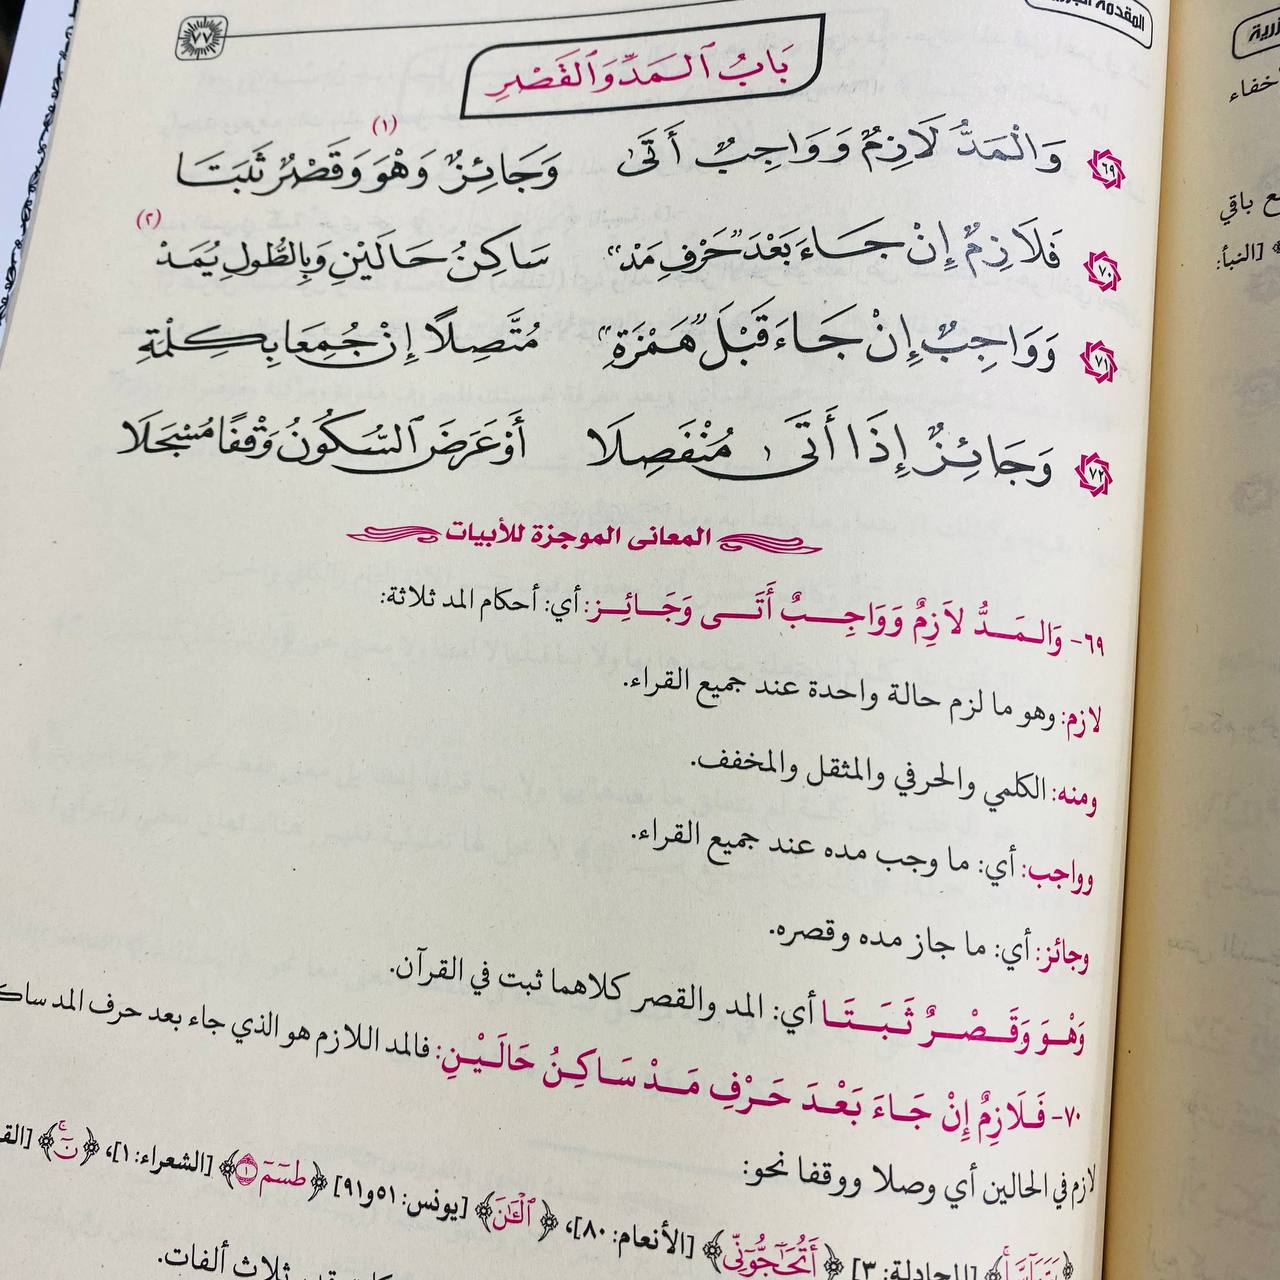 المقدمة
٧٧
بَابُ ٱلْمَدِّ وَٱلْقَصْرِ
٦٩ وَالْمَدُّ لَازِمٌ وَوَاجِبٌ أَتَى وَجَائِزٌ وَهْوَ وَقَصْرٌ ثَبَتَا (١)
٧٠ فَلَازِمٌ إِنْ جَاءَ بَعْدَ "حَرْفِ مَدْ" سَاكِنُ حَالَيْنِ وَبِالطُّولِ يُمَدْ (٢)
٧١ وَوَاجِبٌ إِنْ جَاءَ قَبْلَ "هَمْزَةِ" مُتَّصِلًا إِنْ جُمِعَا بِكِلْمَةِ
٧٢ وَجَائِزٌ إِذَا أَتَى مُنْفَصِلَا أَوْ عَرَضَ ٱلسُّكُونُ وَقْفًا مُسْجَلَا
المعانى الموجزة للأبيات
٦٩- وَالـمَـدُّ لاَزِمٌ وَوَاجِـبٌ أَتَـى وَجَـائِـز: أي: أحكام المد ثلاثة:
لازم: وهو ما لزم حالة واحدة عند جميع القراء.
ومنه: الكلمي والحرفي والمثقل والمخفف.
وواجب: أي: ما وجب مده عند جميع القراء.
وجائز: أي: ما جاز مده وقصره.
وَهْـوَ وَقَـصْـرٌ ثَـبَـتَـا أي: المد والقصر كلاهما ثبت في القرآن.
٧٠- فَـلَازِمٌ إِنْ جَـاءَ بَعْـدَ حَـرْفِ مَـدْ سَـاكِـنُ حَالَـيْـنِ: فالمد اللازم هو الذي جاء بعد حرف المد
لازم في الحالين أي وصلا ووقفا نحو:
﴾ [المجادلة: ٣] ﴿أَتُحَٰٓجُّوٓنِّي﴾ [الأنعام: ٨٠]، ﴿ءَآلْـَٰٔنَ﴾ [يونس: ٥١ و٩١] ﴿طسٓمٓ ١﴾ [الشعراء: ١]، ﴿نٓۚ﴾
ثلاث ألفات.
أخفاء
باقي
[النبأ: